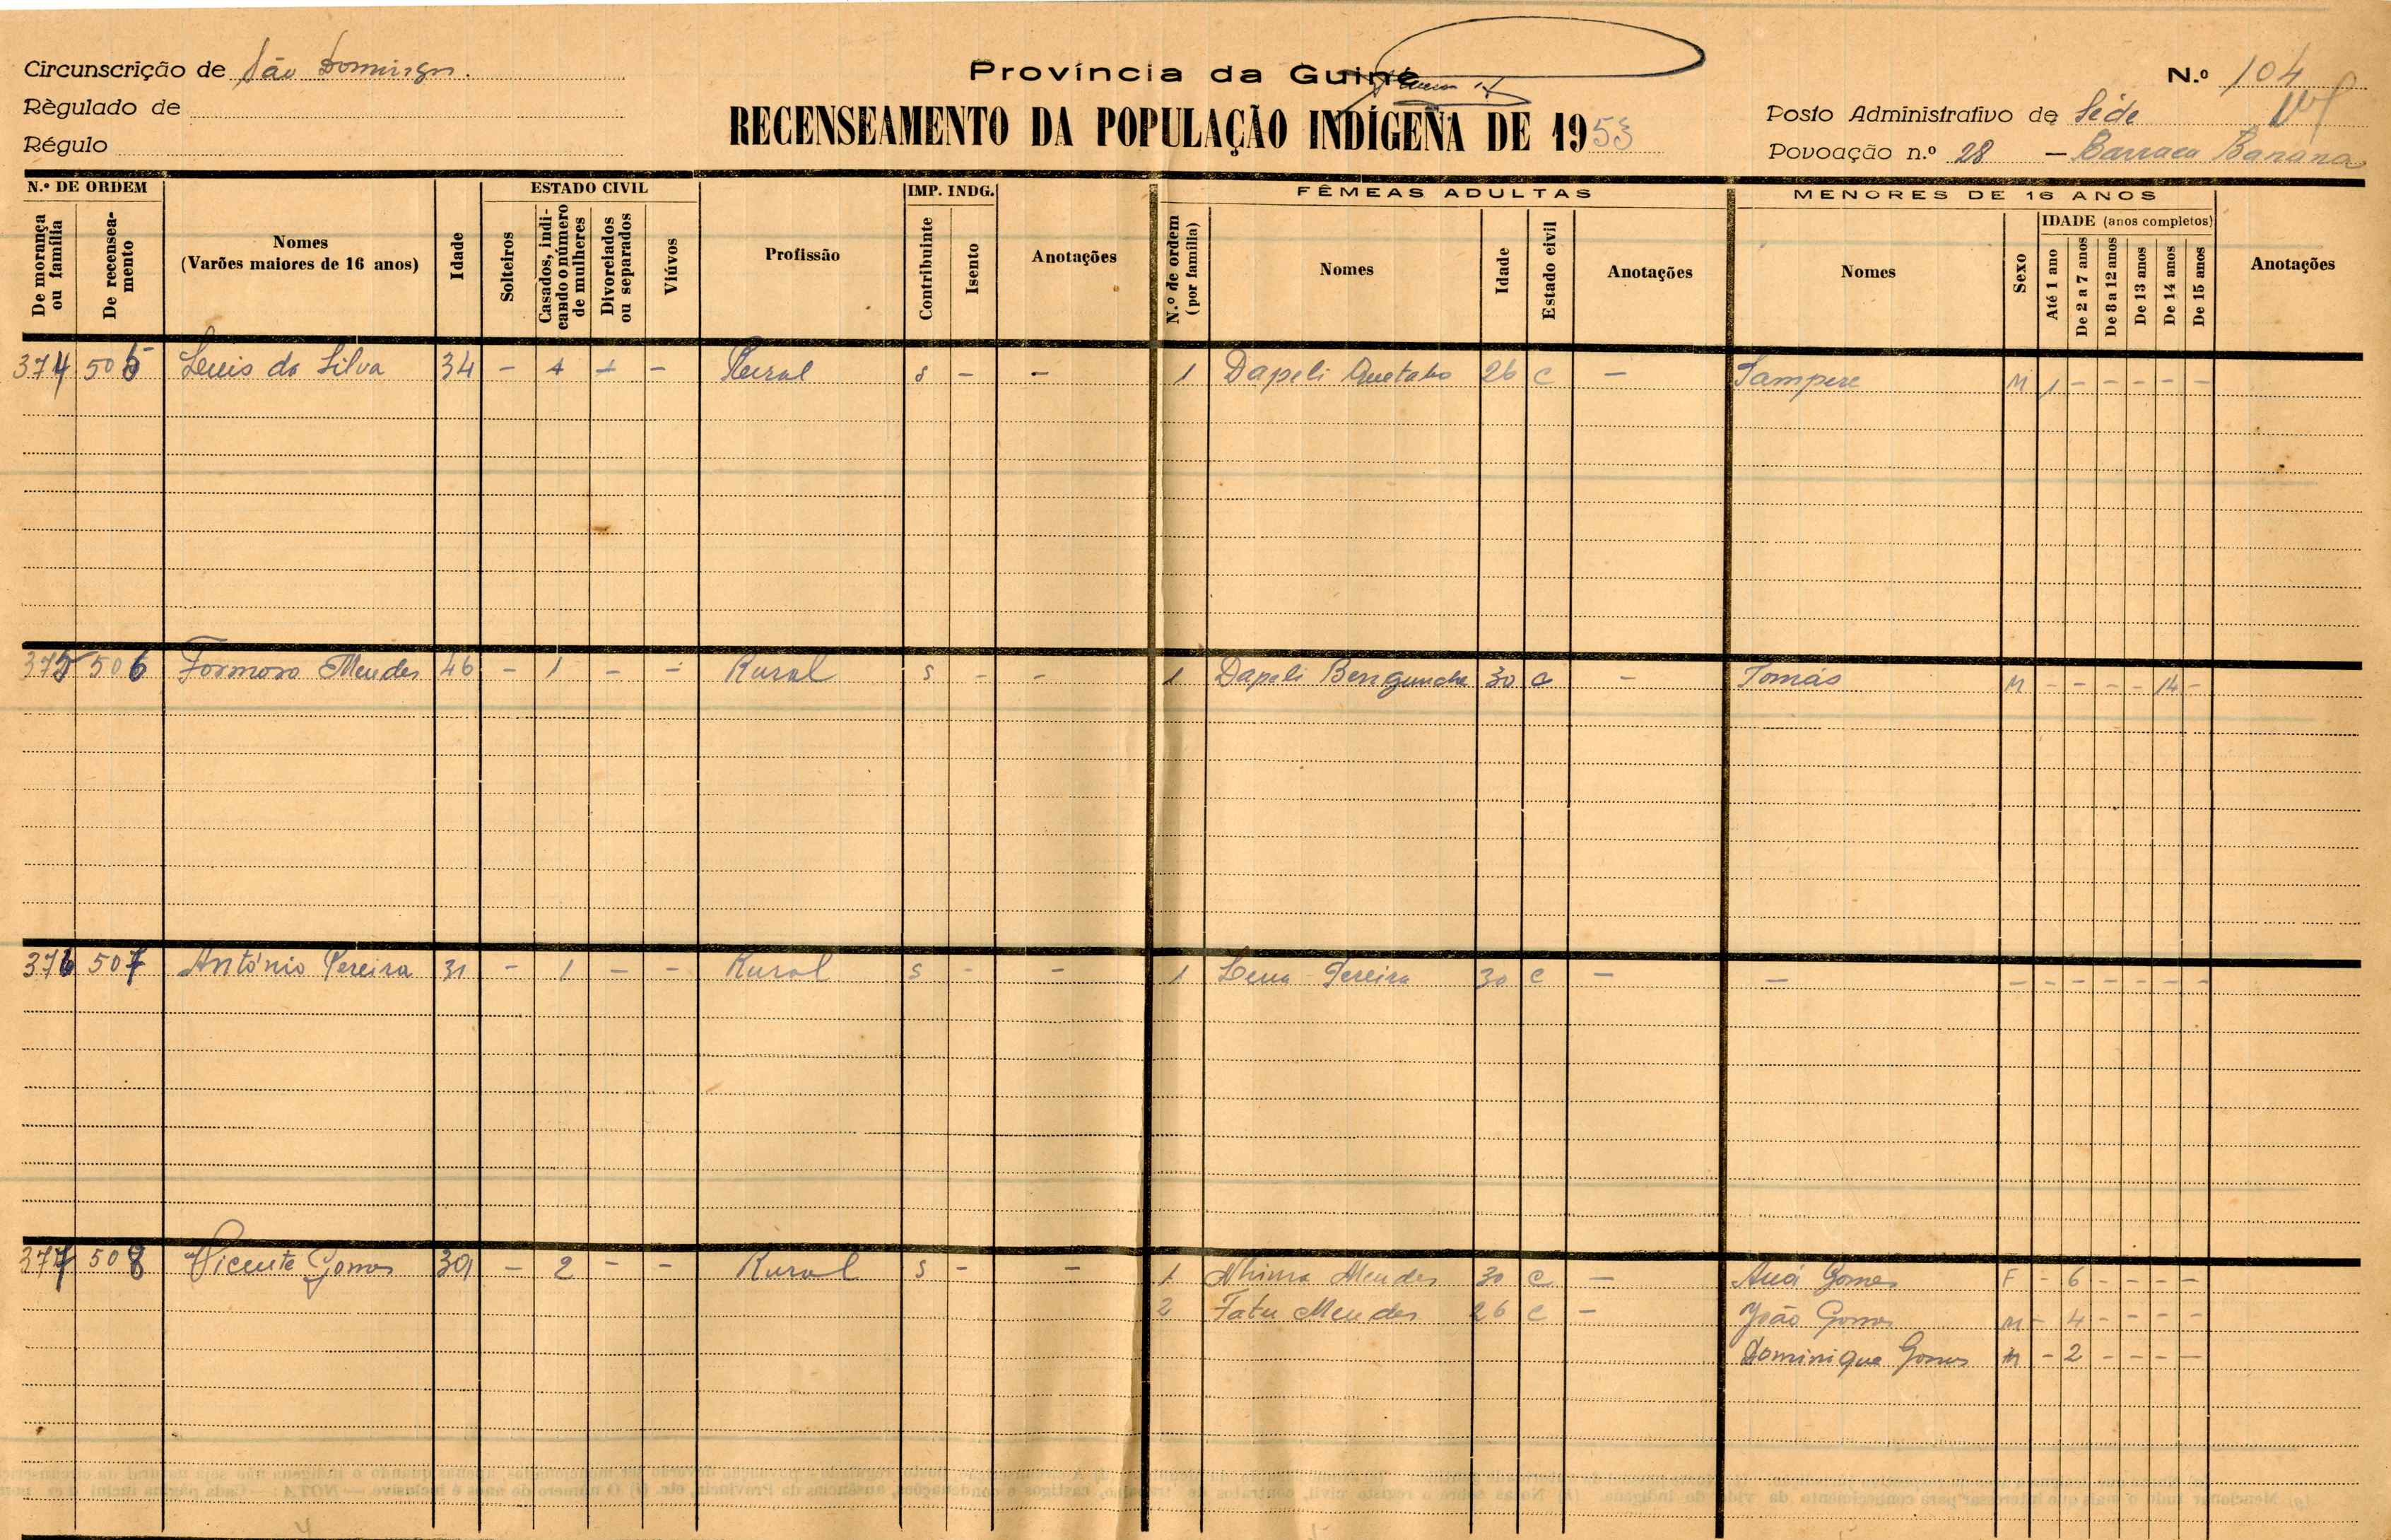 Circunscrição de São Domingos.
Província da Guiné
N.º 104
Règulado de
Régulo
RECENSEAMENTO DA POPULAÇÃO INDÍGENA DE 1953
Posto Administrativo de Séde
Povoação n.º 28 — Barraca Banana
N.º DE ORDEM
ESTADO CIVIL
IMP. INDG.
FÊMEAS ADULTAS
MENORES DE 16 ANOS
De morança ou família
De recenseamento
Nomes
(Varões maiores de 16 anos)
Idade
Solteiros
Casados, indicando o número de mulheres
Divorciados ou separados
Viúvos
Profissão
Contribuinte
Isento
Anotações
N.º de ordem (por família)
Nomes
Idade
Estado civil
Anotações
Nomes
Sexo
IDADE (anos completos)
Até 1 ano
De 2 a 7 anos
De 8 a 12 anos
De 13 anos
De 14 anos
De 15 anos
Anotações
374 505 Luis da Silva 34 - 1 - - Rural s - - 1 Dapeli 26 C - Sampere M 1 - - - - -
375 506 Formoso Mendes 46 - 1 - - Rural s - - 1 Dapeli 30 C - Tomás M - - - - 14 -
376 507 António Pereira 31 - 1 - - Rural s - - 1 Lena Pereira 30 C - - - - - - - - -
377 508 Vicente Gomes 39 - 2 - - Rural s - - 1 Nhima Mendes 30 C - Auá Gomes F - 6 - - - -
2 Fatu Mendes 26 C - João Gomes M - 4 - - - -
Dominique Gomes M - 2 - - - -